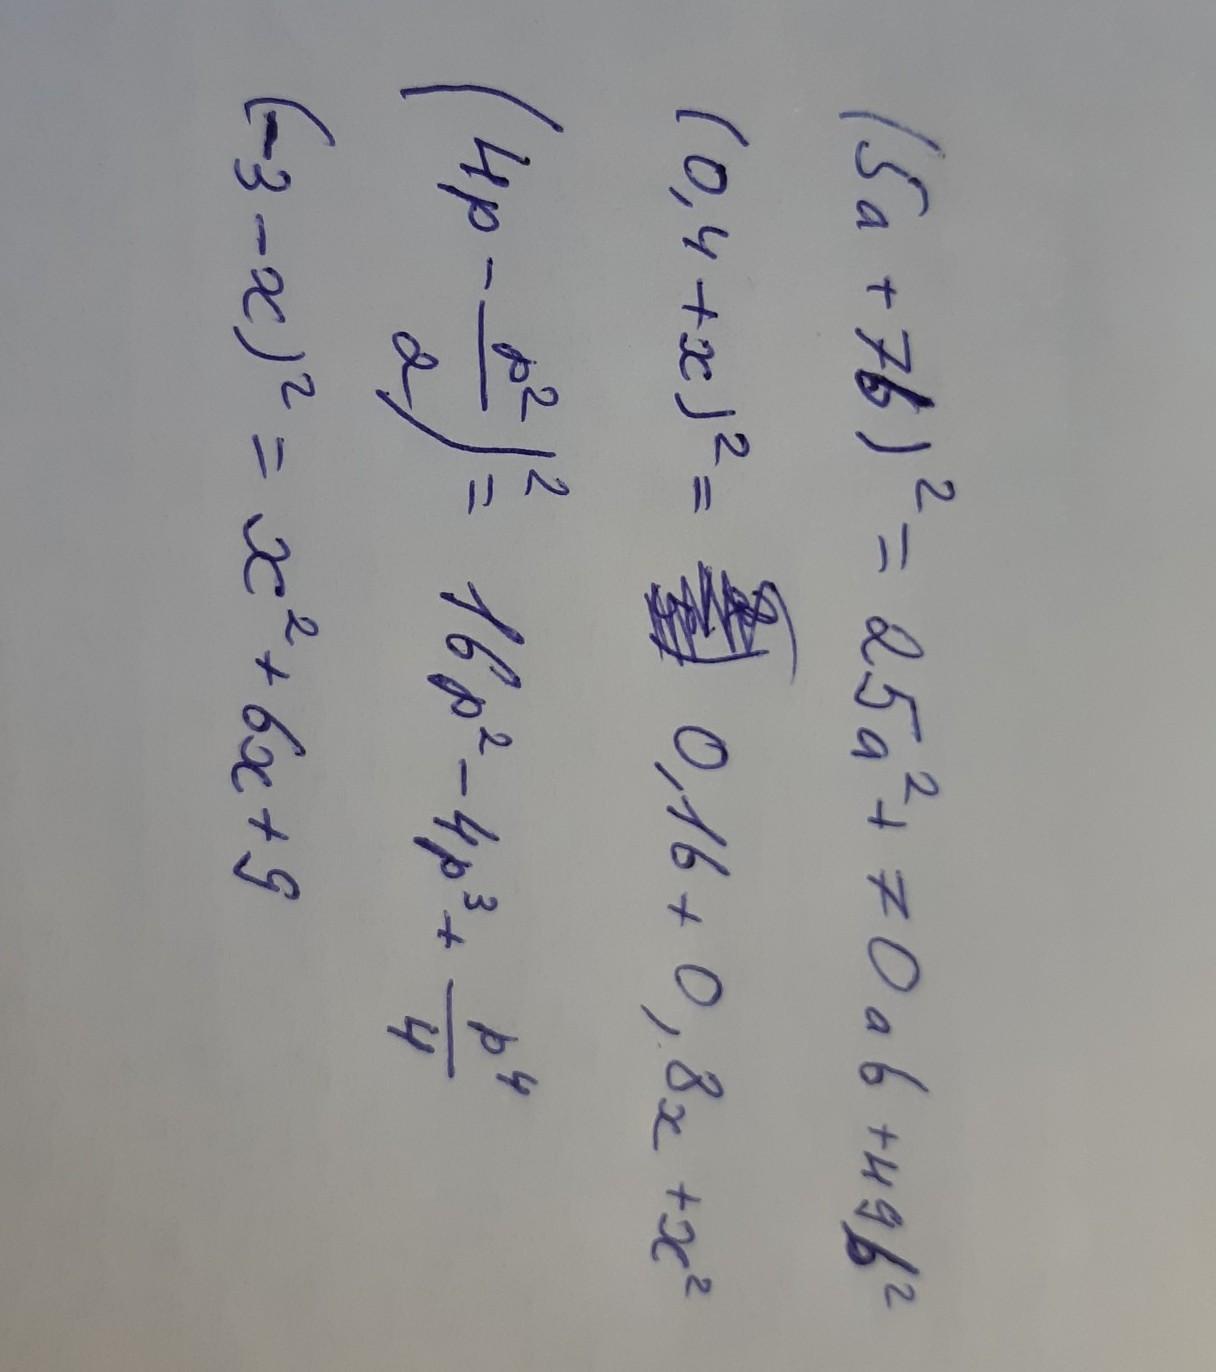 (5a + 7b)² = 25a² + 70ab + 49b²
(0,4 + x)² = 0,16 + 0,8x + x²
(4p - p²/2)² = 16p² - 4p³ + p⁴/4
(-3 - x)² = x² + 6x + 9